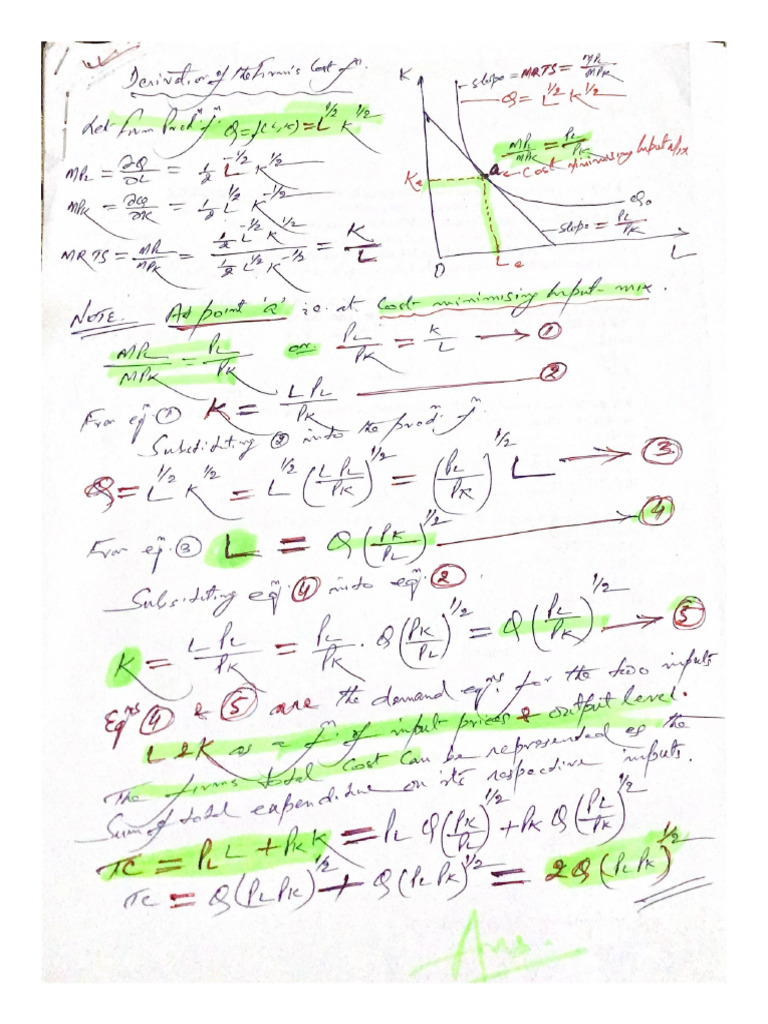 Derivation of the Firm's Cost fⁿ.
Let firm Prodⁿ fⁿ Q = f(L,K) = L^1/2 K^1/2
MPL = ∂Q/∂L = 1/2 L^-1/2 K^1/2
MPK = ∂Q/∂K = 1/2 L^1/2 K^-1/2
MRTS = MPL/MPK = (1/2 L^-1/2 K^1/2)/(1/2 L^1/2 K^-1/2) = K/L
K
slope = MRTS = MPL/MPK
Q = L^1/2 K^1/2
MPL/MPK = PL/PK
a
cost minimising Input Mix
Ke
Q₀
slope = PL/PK
O
Le
L
NOTE. At point 'a' i.e. at Cost minimising Input-mix.
MPL/MPK = PL/PK or PL/PK = K/L → ①
From eqⁿ ① K = L PL/PK ②
Substituting ② into the prodⁿ fⁿ.
Q = L^1/2 K^1/2 = L^1/2 (L PL/PK)^1/2 = (PL/PK)^1/2 L → ③
From eqⁿ ③ L = Q (PK/PL)^1/2 → ④
Substituting eqⁿ ④ into eqⁿ ②
K = L PL/PK = PL/PK · Q (PK/PL)^1/2 = Q (PL/PK)^1/2 → ⑤
Eqⁿˢ ④ & ⑤ are the demand eqⁿˢ for the two inputs
L & K as a fⁿ. of input prices & output level.
The firms total cost can be represented as the
Sum of total expenditure on its respective inputs.
TC = PL L + PK K = PL Q (PK/PL)^1/2 + PK Q (PL/PK)^1/2
TC = Q (PL PK)^1/2 + Q (PL PK)^1/2 = 2Q (PL PK)^1/2
Ans.